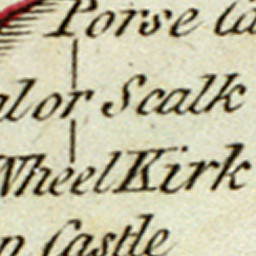 Porse Ca
alor Scalk
Wheel Kirk
n Castle